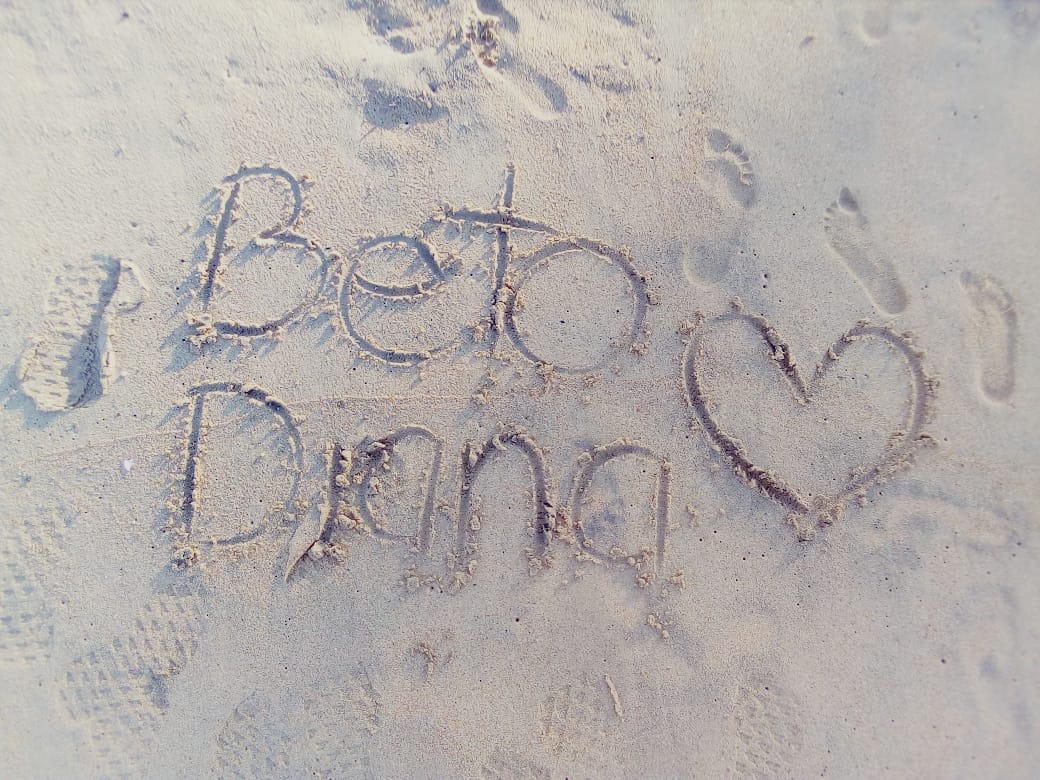 Beto
Diana